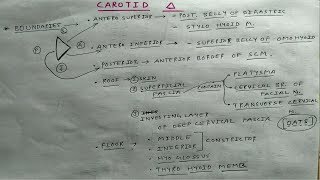 CAROTID △
* BOUNDARIES → ANTERO SUPERIOR → POST. BELLY OF DIGASTRIC
→ STYLO HYOID M.
→ ANTERO INFERIOR → SUPERIOR BELLY OF OMOHYOID
→ POSTERIOR → ANTERIOR BORDER OF SCM.
• ROOF → ① SKIN
② SUPERFICIAL FASCIA CONTAIN
→ PLATYSMA
→ CERVICAL BR. OF FACIAL N.
→ TRANSVERSE CERVICAL N.
③ INVESTING LAYER OF DEEP CERVICAL FASCIA
DATE
• FLOOR → • MIDDLE
• INFERIOR
CONSTRICTOR
• HYOGLOSSUS
• THYRO HYOID MEMB.